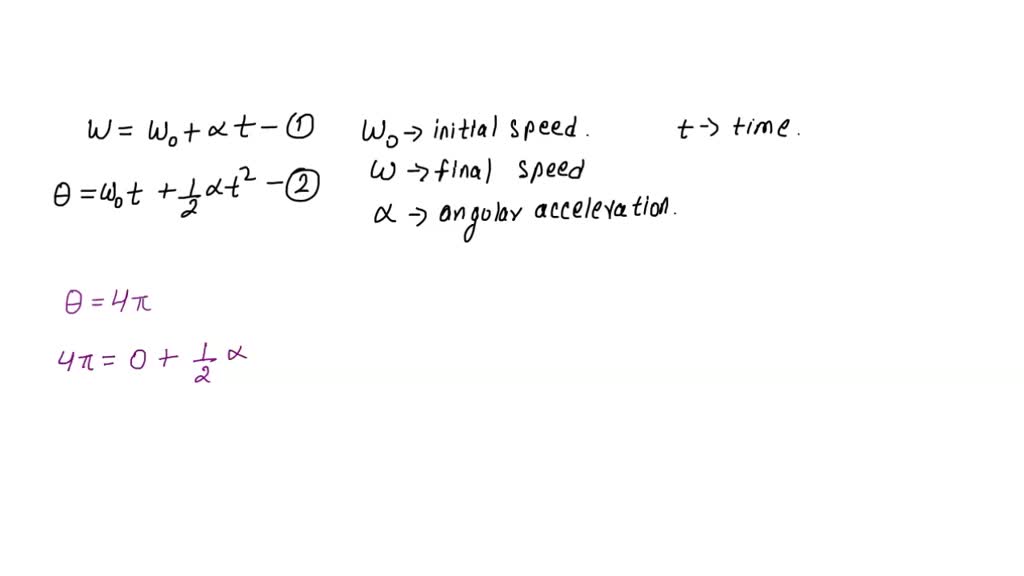 ω = ω₀ + αt - ①
ω₀ → initial speed.
t → time.
θ = ω₀t + 1/2 αt² - ②
ω → final speed
α → angular acceleration.
θ = 4π
4π = 0 + 1/2 α